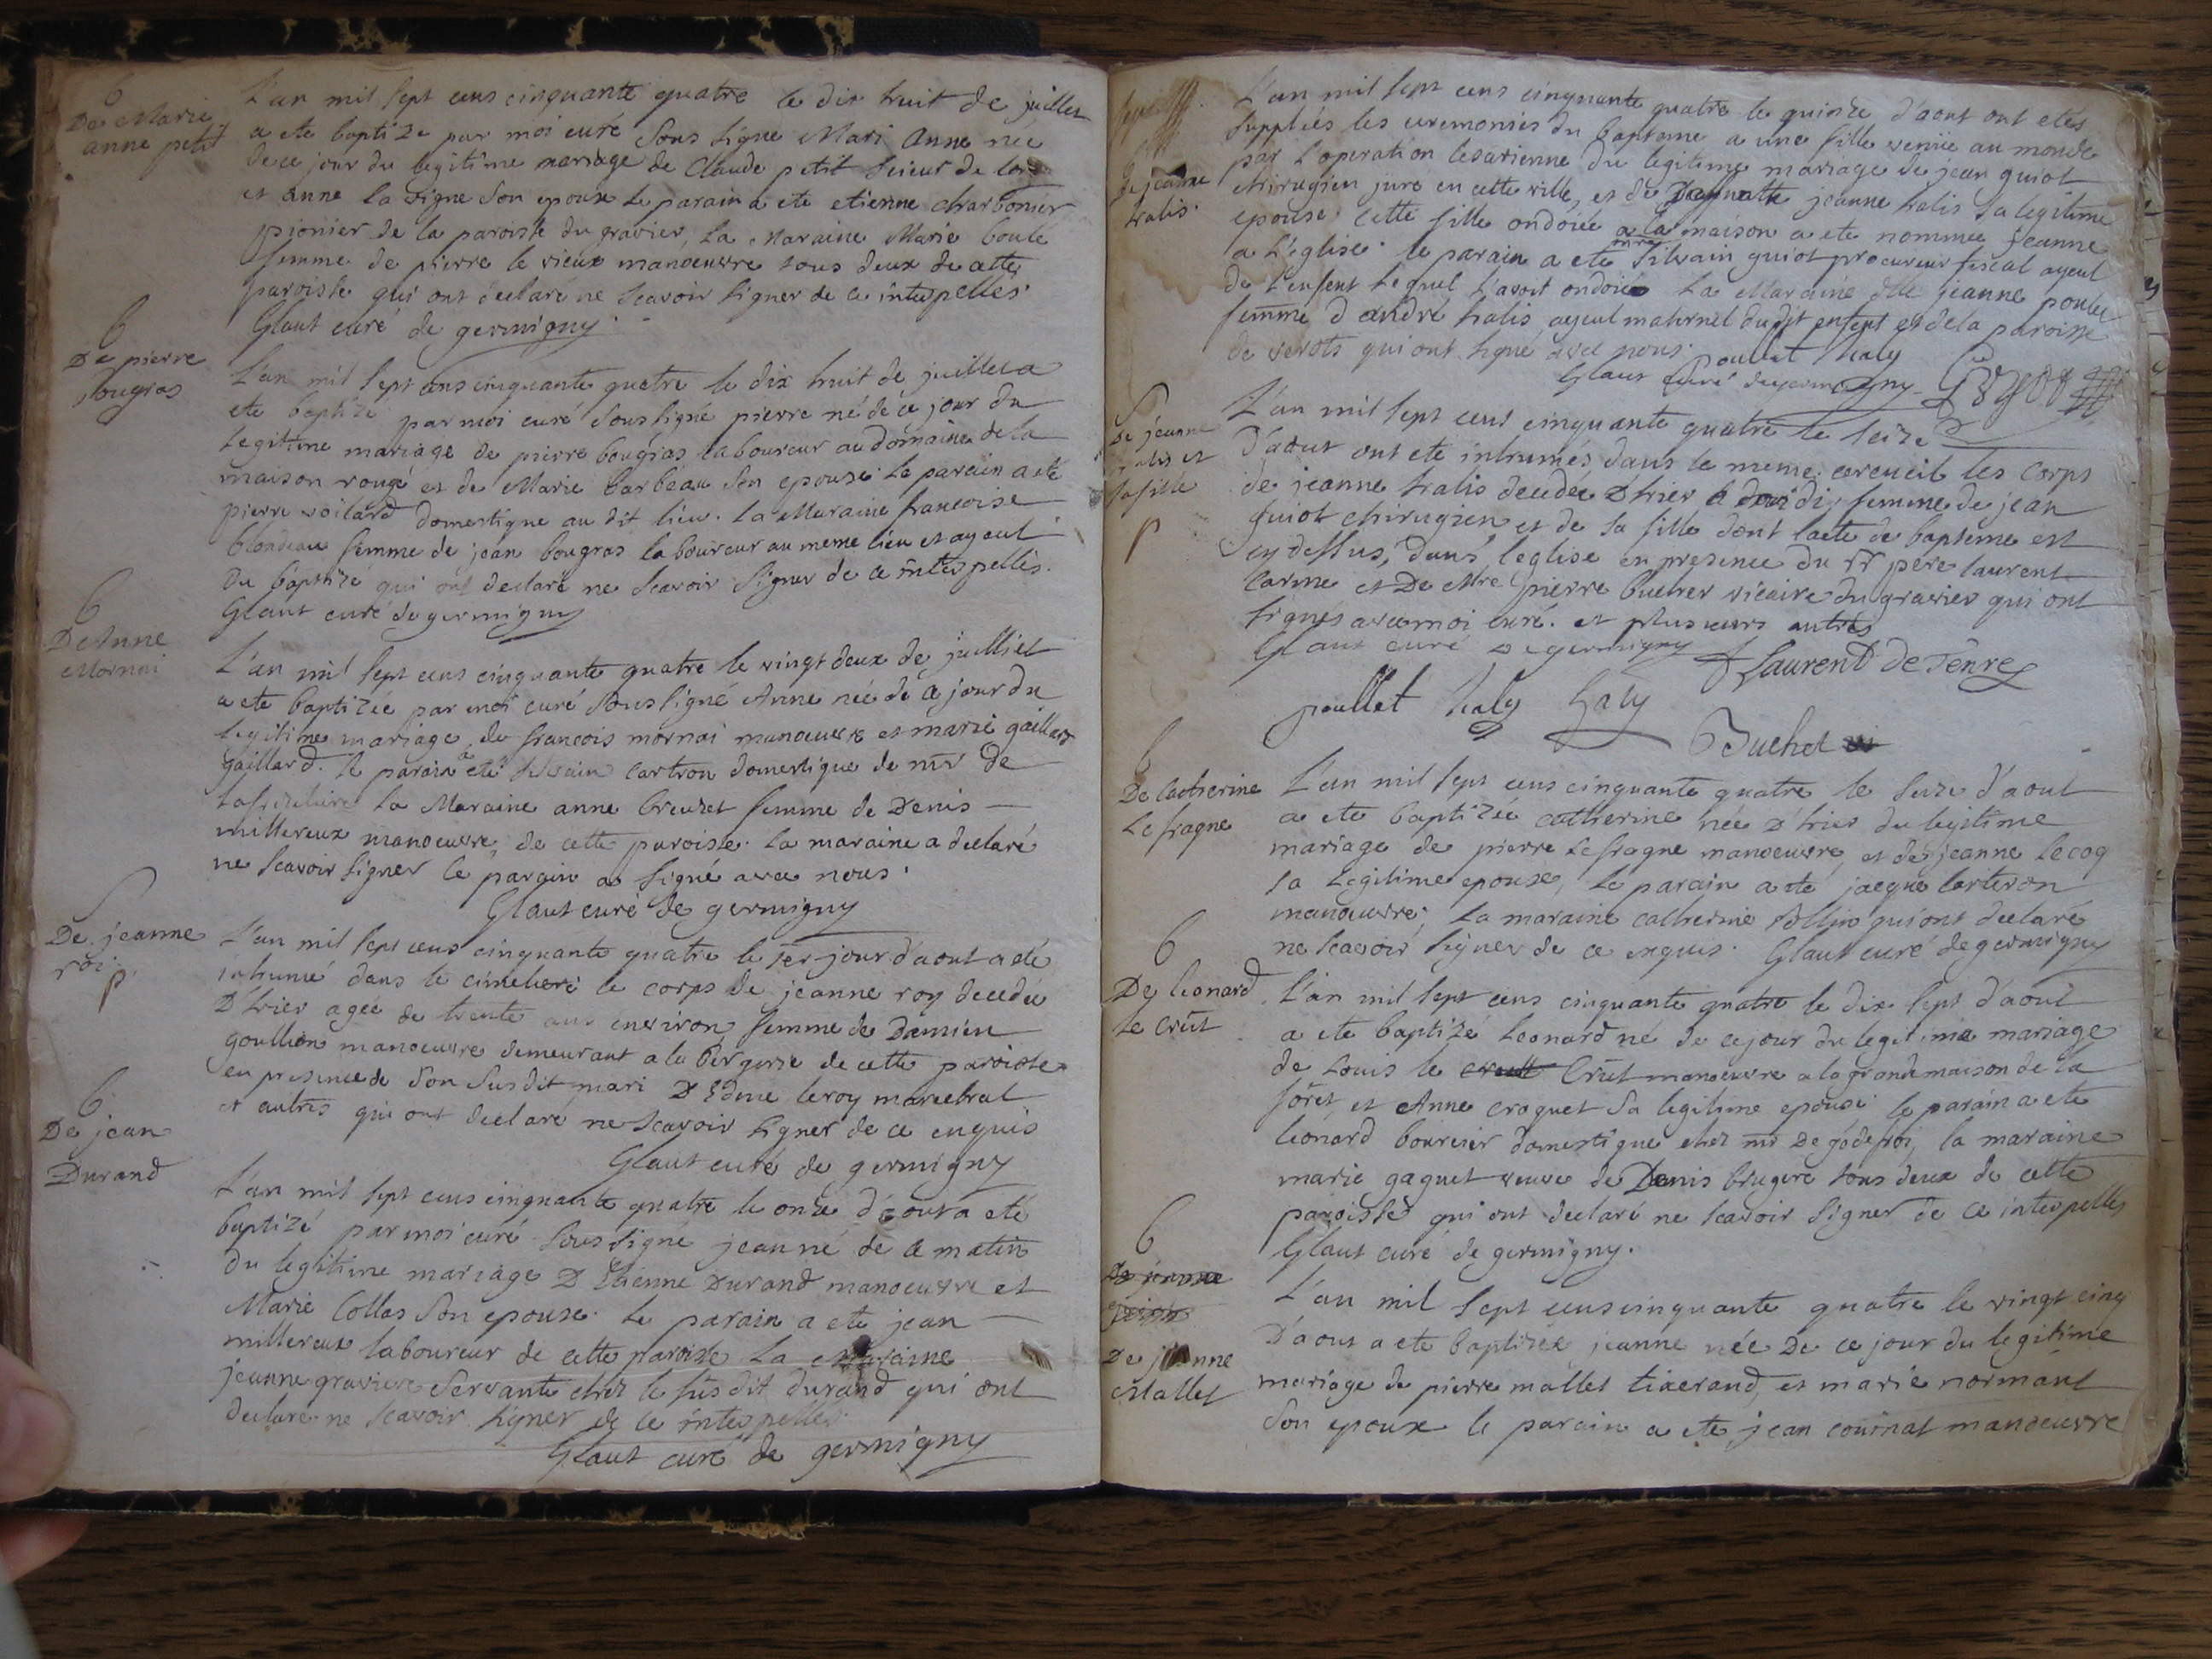 6
De Marie
anne petit
L'an mil sept cens cinquante quatre le dix huit de juillet
a ete baptize par moi curé sous signé Mari Anne nee
de ce jour du legitime mariage de Claude petit sieur de
et anne la vigne son epouse le parain a ete etienne charbonier
pionier de la paroisse du gravier, la Maraine Marie boulé
femme de pierre le vieux manoeuvre tous deux de cette
paroisse qui ont declaré ne scavoir signer de ce interpelles.
Glaut curé de germigny.
6
De pierre
bougras
L'an mil sept cens cinquante quatre le dix huit de juillet a
ete baptizé par moi curé sous signé pierre né de ce jour du
legitime mariage de pierre bougras laboureur au domaine de la
maison rouge et de Marie barbeau son epouse le parain a ete
pierre voilard domestique au dit lieu. la Maraine francoise
blondeau femme de jean bougras laboureur au meme lieu et ayeul
du baptizé qui ont declaré ne scavoir signer de ce interpellés.
Glaut curé de germigny
6
De Anne
Mornai
L'an mil sept cens cinquante quatre le vingt deux de juilliet
a ete baptizée par moi curé sous signé Anne née de ce jour du
legitime mariage de francois mornai manoeuvre et marie gaillard
gaillard. le parain a eté silvain cartron domestique de mr de
la Maraine anne breuzet femme de Denis
millereux manoeuvre, de cette paroisse. la maraine a declaré
ne scavoir signer le parain a signé avec nous.
Glaut curé de germigny
S
De jeanne
roi.
p
L'an mil sept cens cinquante quatre le 1er jour d'aout a eté
inhumé dans le cimetiere le corps de jeanne roy decedée
D'hier agée de trente ans environ femme de Damien
goullion manoeuvre demeurant a la bergerie de cette paroisse
en presence de son susdit mari D'Edme leroy marechal
et autres qui ont declaré ne scavoir signer de ce enquis
Glaut curé de germigny
6
De jean
Durand
L'an mil sept cens cinquante quatre le onze d'aout a eté
baptizé par moi curé sous signé jean né de ce matin
du legitime mariage D'Etienne Durand manoeuvre et
Marie Collas son epouse. le parain a ete jean
millereux laboureur de cette paroisse la Maraine
jeanne graviere servante chez le susdit durand qui ont
declaré ne scavoir signer de ce interpelles
Glaut curé de germigny
De jeanne
halis.
L'an mil sept cens cinquante quatre le quinze d'aout ont etés
suppliés les ceremonies du baptome a une fille venüe au monde
par l'operation cesarienne du legitime mariage de jean guiot
chirugien juré en cette ville, et de jeanne halis sa legitime
epouse. cette fille ondoiée a la maison a ete nommée jeanne
a l'église. le parain a ete mre silvain guiot procureur fiscal ayeul
de l'enfent lequel l'avoit ondoiée la Maraine dlle jeanne poulet
femme d'andré halis ayeul maternel dudit enfent et de la paroisse
de verots qui ont signé avec nous.
poullet haly
Glaut curé de germigny Guyot
S
De jeanne
halis et
sa fille
p
L'an mil sept cens cinquante quatre le seize
d'aout ont ete inhumés dans le meme cercueil les corps
de jeanne halis decedée d'hier a midi, femme de jean
guiot chirugien et de sa fille dont l'acte de bapteme est
cy dessus, dans l'eglise en presence du rr pere laurent
carme et De Mre pierre buchet vicaire du gravier qui ont
signés avec moi curé. et plusieurs autres
Glaut curé de germigny f Laurent de
poullet haly haly
Buchet
6
De Catherine
Lefragne
L'an mil sept cens cinquante quatre le seize d'aout
a ete baptizée catherine née d'hier du legitime
mariage de pierre Lefragne manoeuvre, et de jeanne Lecoq
sa legitime epouse, le parain a eté jacque carteron
manoeuvre. la maraine catherine qui ont declaré
ne scavoir signer de ce enquis. Glaut curé de germigny
6
De leonard
Le Crút
L'an mil sept cens cinquante quatre le dix sept d'aout
a ete baptizé leonard né de ce jour du legitime mariage
de Louis le Crút manoeuvre a la grande maison de la
forêt, et Anne croquet sa legitime epouse. le parain a ete
leonard bourcier domestique chez mr De godefroi, la maraine
marie gaguet veuve de Denis brugere tous deux de cette
paroisse qui ont declaré ne scavoir signer de ce interpelles
Glaut curé de germigny.
6
De jeanne
Mallet
L'an mil sept cens cinquante quatre le vingt cinq
D'aout a ete baptizée jeanne née De ce jour du legitime
mariage de pierre mallet tixerand, et marie normant
son epouse le parain a ete jean couinat manoeuvre